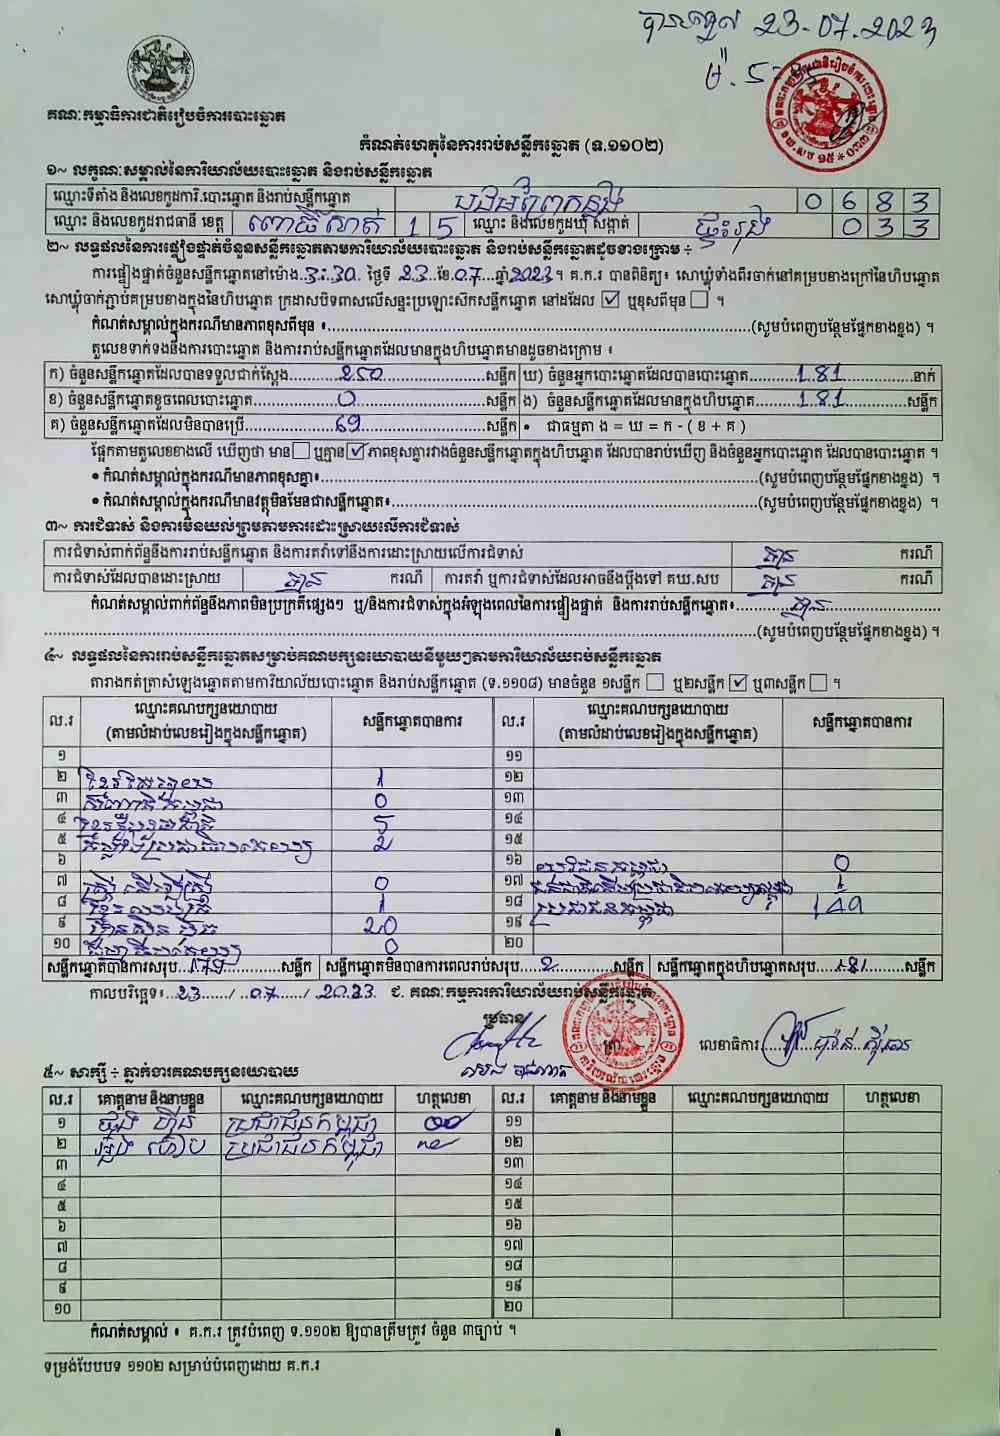 23-07.2023
គណៈកម្មាធិការជាតិរៀបចំការបោះឆ្នោត
កំណត់ហេតុនៃការរាប់សន្លឹកឆ្នោត (ទ.១១០២)
១~ លក្ខណៈសម្គាល់នៃការិយាល័យបោះឆ្នោត និងរាប់សន្លឹកឆ្នោត
ឈ្មោះទីតាំង និងលេខកូដការិ.បោះឆ្នោត និងរាប់សន្លឹកឆ្នោត 0 6 8 3
ឈ្មោះ និងលេខកូដរាជធានី ខេត្ត ពោធិ៍សាត់ 1 5 ឈ្មោះ និងលេខកូដឃុំ សង្កាត់ ផ្ទះរុង 0 3 3
២~ លទ្ធផលនៃការផ្ទៀងផ្ទាត់ចំនួនសន្លឹកឆ្នោតតាមការិយាល័យបោះឆ្នោត និងរាប់សន្លឹកឆ្នោតដូចខាងក្រោម ÷
ការផ្ទៀងផ្ទាត់ចំនួនសន្លឹកឆ្នោតនៅម៉ោង 3:30 ថ្ងៃទី 23 ខែ 07 ឆ្នាំ 2023 ។ គ.ក.រ បានពិនិត្យ៖ សោឃ្លុំទាំងពីរចាក់នៅគម្របខាងក្រៅនៃហិបឆ្នោត
សោឃ្លុំចាក់ភ្ជាប់គម្របខាងក្នុងនៃហិបឆ្នោត ក្រដាសបិទពាសលើសន្ទះប្រឡោះស៊កសន្លឹកឆ្នោត នៅដដែល ☑ ឬខុសពីមុន ☐ ។
កំណត់សម្គាល់ក្នុងករណីមានភាពខុសពីមុន ៖ (សូមបំពេញបន្ថែមផ្នែកខាងខ្នង) ។
តួលេខទាក់ទងនឹងការបោះឆ្នោត និងការរាប់សន្លឹកឆ្នោតដែលមានក្នុងហិបឆ្នោតមានដូចខាងក្រោម ៖
ក) ចំនួនសន្លឹកឆ្នោតដែលបានទទួលជាក់ស្តែង 250 សន្លឹក ឃ) ចំនួនអ្នកបោះឆ្នោតដែលបានបោះឆ្នោត 181 នាក់
ខ) ចំនួនសន្លឹកឆ្នោតខូចពេលបោះឆ្នោត 0 សន្លឹក ង) ចំនួនសន្លឹកឆ្នោតដែលមានក្នុងហិបឆ្នោត 181 សន្លឹក
គ) ចំនួនសន្លឹកឆ្នោតដែលមិនបានប្រើ 69 សន្លឹក • ជាធម្មតា ង = ឃ = ក - ( ខ + គ )
ផ្អែកតាមតួលេខខាងលើ ឃើញថា មាន ☐ ឬគ្មាន ☑ ភាពខុសគ្នារវាងចំនួនសន្លឹកឆ្នោតក្នុងហិបឆ្នោត ដែលបានរាប់ឃើញ និងចំនួនអ្នកបោះឆ្នោត ដែលបានបោះឆ្នោត ។
• កំណត់សម្គាល់ក្នុងករណីមានភាពខុសគ្នា៖ (សូមបំពេញបន្ថែមផ្នែកខាងខ្នង) ។
• កំណត់សម្គាល់ក្នុងករណីមានវត្ថុមិនមែនជាសន្លឹកឆ្នោត៖ (សូមបំពេញបន្ថែមផ្នែកខាងខ្នង) ។
៣~ ការជំទាស់ និងការមិនយល់ព្រមតាមការដោះស្រាយលើការជំទាស់
ការជំទាស់ពាក់ព័ន្ធនឹងការរាប់សន្លឹកឆ្នោត និងការតវ៉ាទៅនឹងការដោះស្រាយលើការជំទាស់ គ្មាន ករណី
ការជំទាស់ដែលបានដោះស្រាយ គ្មាន ករណី ការតវ៉ា ឬការជំទាស់ដែលអាចនឹងប្តឹងទៅ គឃ.សប គ្មាន ករណី
កំណត់សម្គាល់ពាក់ព័ន្ធនឹងភាពមិនប្រក្រតីផ្សេងៗ ឬ/និងការជំទាស់ក្នុងអំឡុងពេលនៃការផ្ទៀងផ្ទាត់ និងការរាប់សន្លឹកឆ្នោត៖ គ្មាន
(សូមបំពេញបន្ថែមផ្នែកខាងខ្នង) ។
៤~ លទ្ធផលនៃការរាប់សន្លឹកឆ្នោតសម្រាប់គណបក្សនយោបាយនីមួយៗតាមការិយាល័យរាប់សន្លឹកឆ្នោត
តារាងកត់ត្រាសំឡេងឆ្នោតតាមការិយាល័យបោះឆ្នោត និងរាប់សន្លឹកឆ្នោត (ទ.១១០៨) មានចំនួន ១សន្លឹក ☐ ឬ២សន្លឹក ☑ ឬ៣សន្លឹក ☐ ។
ល.រ ឈ្មោះគណបក្សនយោបាយ (តាមលំដាប់លេខរៀងក្នុងសន្លឹកឆ្នោត) សន្លឹកឆ្នោតបានការ ល.រ ឈ្មោះគណបក្សនយោបាយ (តាមលំដាប់លេខរៀងក្នុងសន្លឹកឆ្នោត) សន្លឹកឆ្នោតបានការ
១ ១១
២ 1 ១២
៣ 0 ១៣
៤ 5 ១៤
៥ ១៥
៦ ១៦ យុវជនកម្ពុជា 0
៧ 0 ១៧ 1
៨ 1 ១៨ ប្រជាជនកម្ពុជា 149
៩ 20 ១៩
១០ 0 ២០
សន្លឹកឆ្នោតបានការសរុប 179 សន្លឹក សន្លឹកឆ្នោតមិនបានការពេលរាប់សរុប 2 សន្លឹក សន្លឹកឆ្នោតក្នុងហិបឆ្នោតសរុប 181 សន្លឹក
កាលបរិច្ឆេទ៖ 23 / 07 / 2023 ជ. គណៈកម្មការការិយាល័យរាប់សន្លឹកឆ្នោត
ប្រធាន
ត្រា លេខាធិការ
៥~ សាក្សី ÷ ភ្នាក់ងារគណបក្សនយោបាយ
ល.រ គោត្តនាម និងនាមខ្លួន ឈ្មោះគណបក្សនយោបាយ ហត្ថលេខា ល.រ គោត្តនាម និងនាមខ្លួន ឈ្មោះគណបក្សនយោបាយ ហត្ថលេខា
១ ប្រជាជនកម្ពុជា ១១
២ ប្រជាជនកម្ពុជា ១២
៣ ១៣
៤ ១៤
៥ ១៥
៦ ១៦
៧ ១៧
៨ ១៨
៩ ១៩
១០ ២០
កំណត់សម្គាល់ ៖ គ.ក.រ ត្រូវបំពេញ ទ.១១០២ ឱ្យបានត្រឹមត្រូវ ចំនួន ៣ច្បាប់ ។
ទម្រង់បែបបទ ១១០២ សម្រាប់បំពេញដោយ គ.ក.រ